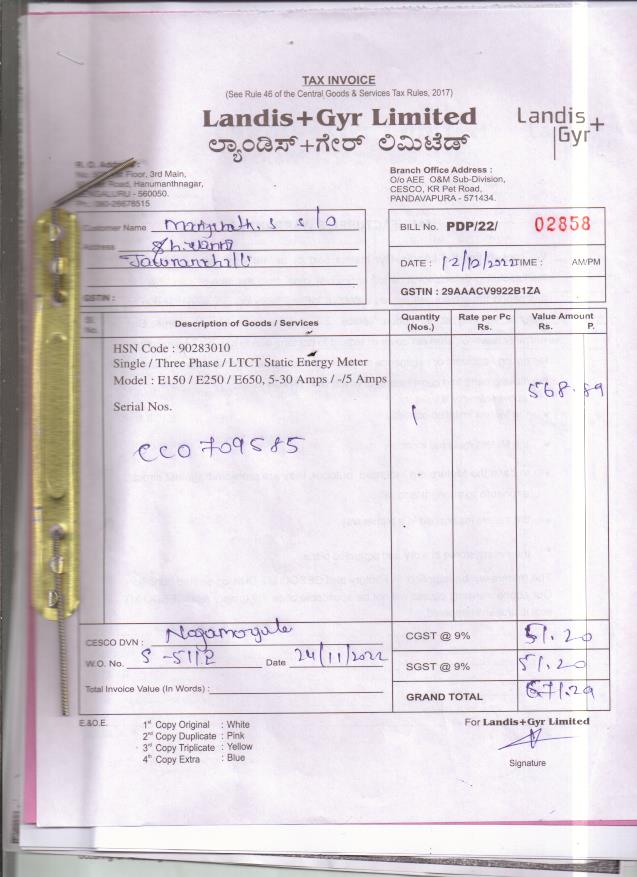 TAX INVOICE
(See Rule 46 of the Central Goods & Services Tax Rules, 2017)
Landis+Gyr Limited
ಲ್ಯಾಂಡಿಸ್+ಗೇರ್ ಲಿಮಿಟೆಡ್
Landis+
Gyr
Floor, 3rd Main,
Road, Hanumanthnagar,
BENGALURU - 560050.
Ph : 080-26678515
Branch Office Address :
O/o AEE O&M Sub-Division,
CESCO, KR Pet Road,
PANDAVAPURA - 571434.
Customer Name Manjunath. S S/O
Address
GSTIN :
BILL No. PDP/22/ 02858
DATE : 12/12/2022 TIME : AM/PM
GSTIN : 29AAACV9922B1ZA
Sl. No. Description of Goods / Services Quantity (Nos.) Rate per Pc Rs. Value Amount Rs. P.
HSN Code : 90283010
Single / Three Phase / LTCT Static Energy Meter
Model : E150 / E250 / E650, 5-30 Amps / -/5 Amps
568.89
Serial Nos.
1
CC0709585
CESCO DVN : Nagamangala
CGST @ 9% 51.20
W.O. No. S-5112 Date 24/11/2022
SGST @ 9% 51.20
Total Invoice Value (In Words) :
GRAND TOTAL 671.29
E.&O.E.
1st Copy Original : White
2nd Copy Duplicate : Pink
3rd Copy Triplicate : Yellow
4th Copy Extra : Blue
For Landis+Gyr Limited
Signature